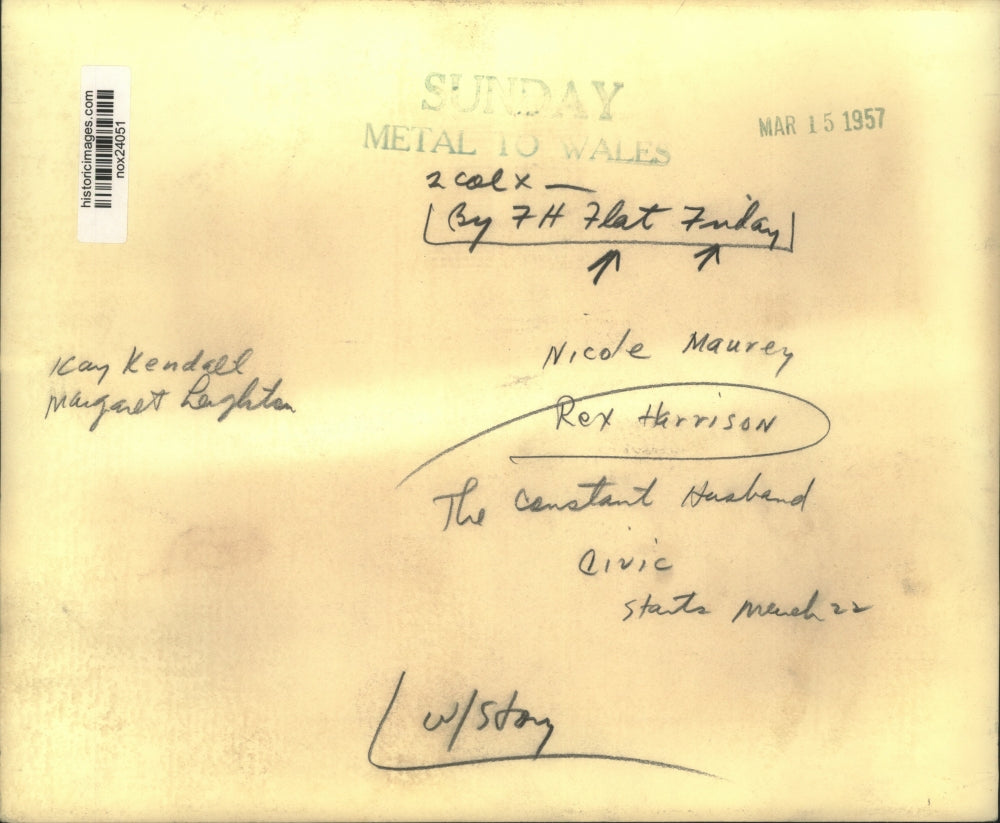 historicimages.com
nox24051
SUNDAY
METAL TO WALES
MAR 15 1957
2 col x —
By FH Flat Friday
Kay Kendall
Margaret Leighton
Nicole Maurey
Rex Harrison
The Constant Husband
Civic
Starts March 22
w/story